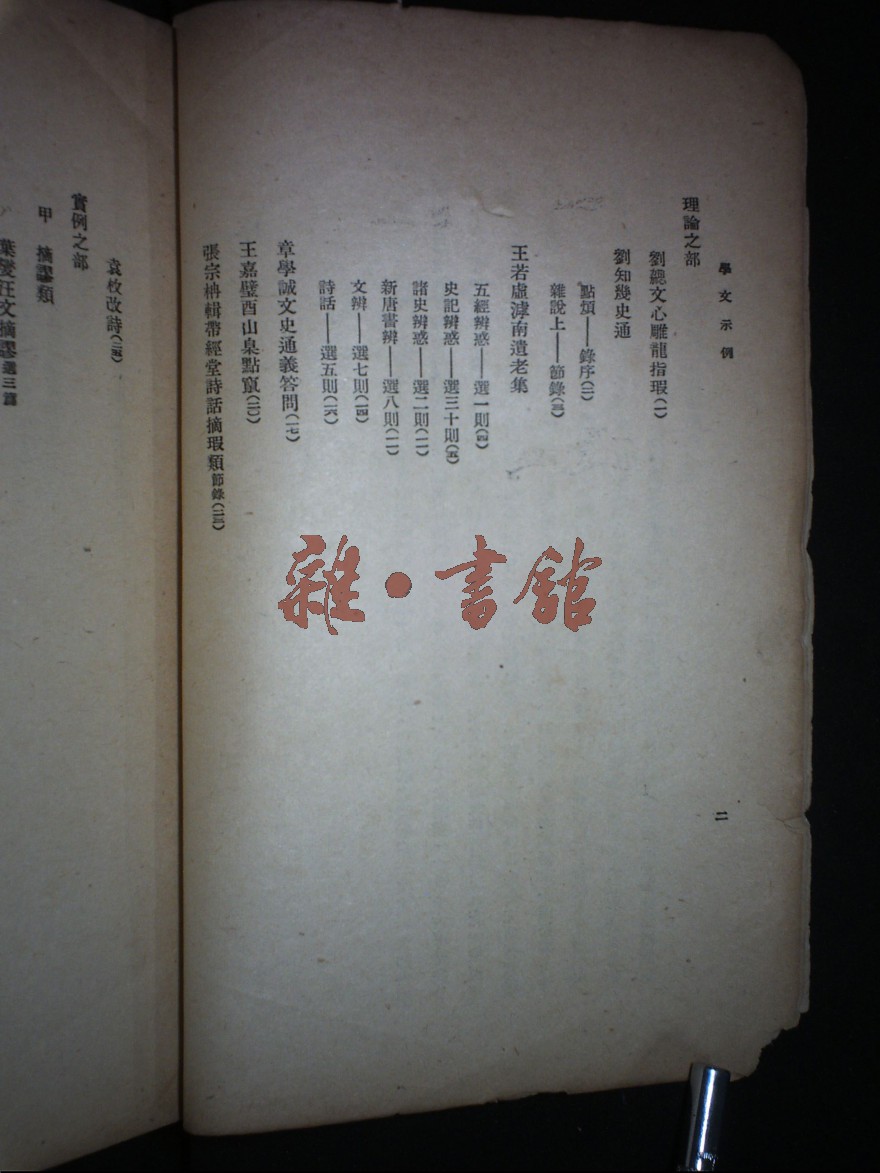 學文示例
二
理論之部
劉勰文心雕龍指瑕(一)
劉知幾史通
點煩——錄序(二)
雜說上——節錄(三)
王若虛滹南遺老集
五經辨惑——選一則(四)
史記辨惑——選三十則(五)
諸史辨惑——選二則(一一)
新唐書辨——選八則(一一)
文辨——選七則(一四)
詩話——選五則(一六)
章學誠文史通義答問(一七)
王嘉璧酉山臬點竄(二〇)
張宗柟輯帶經堂詩話摘瑕類節錄(二三)
袁枚改詩(二五)
實例之部
甲 摘謬類
葉燮汪文摘謬選三篇
雜·書館